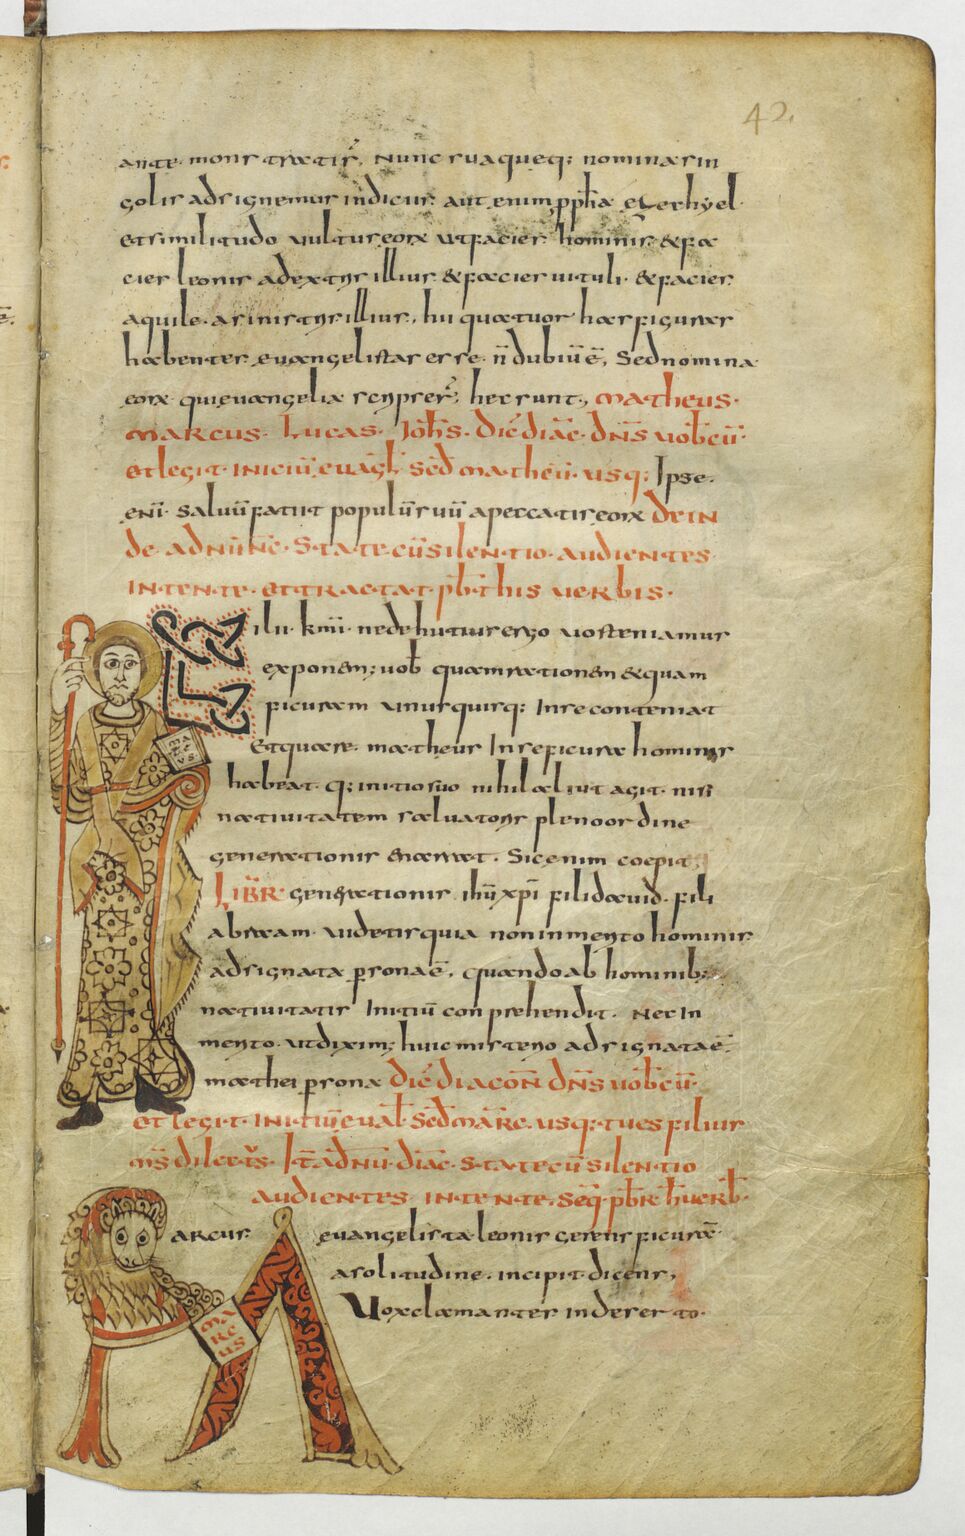 42.
ante. mons trætir̃, Nunc suaqueq; nominasin
golis adsignemus indicus. aut enim, pph̃a eZechyel.
etsimilitudo uultus, eorꝝ utfacies hominis. &fa
cies leonis adextris illius. &facies uituli. &facies
aquile. asinistris illius, hii quatuor has figuras
habentes. euangelistas esse. ñ dubiū ē, Sednomina
eorꝝ quieuangelia scripser̃; hec sunt, matheus.
marcus. Lucas. Joh̃s. Dic̃ diac̃. dn̄s uob̃cū.
et legit. iniciū, euagl̃ scd̃ matheū. usq; Ipse.
enī. saluū faciet populū suū apeccatis, eorꝝ dein
de. adnūnc̃. state cū silentio. audientes
intente. et tractat. pb̃. his uerbis.
Filii. kmi. nedehutius ergo uosteniamus
exponem; uob̃ quam rationem &quam
ficuram unusquisq; Inse conteniat
Etquare. matheus Inse ficura hominis
habeat. q; initiosuo nihil aliut agit. nisi
natiuitatem saluatoris plenoordine
generationis enarrat. Sic, enim coepit,
Lib̃r. generationis ihū xp̄i filidauid. fili
abraam. uidetis quia non inmerito hominis.
adsignata p̱sona ē. quando ab hominib;
natiuitatis Initiū conprehendit. Nec In
merito. utdixim; huic misterio adsignata ē.
mathei p̱sona dic̃ diacoñ dn̄s uob̃cū.
et legit. initiū euāl̃. scd̃ mar̃c. usq; tu es filius
m̄s dilect̃s. It̃ adnū. diac̃. state cū silentio
audientes intente. seq̃. pb̃r. h̃ uerb̃.
Marcus. euangelista. leonis gerens ficurā.
asolitudine. incipit. dicens,
Uox clamantes in deserto.
ma
rc
us